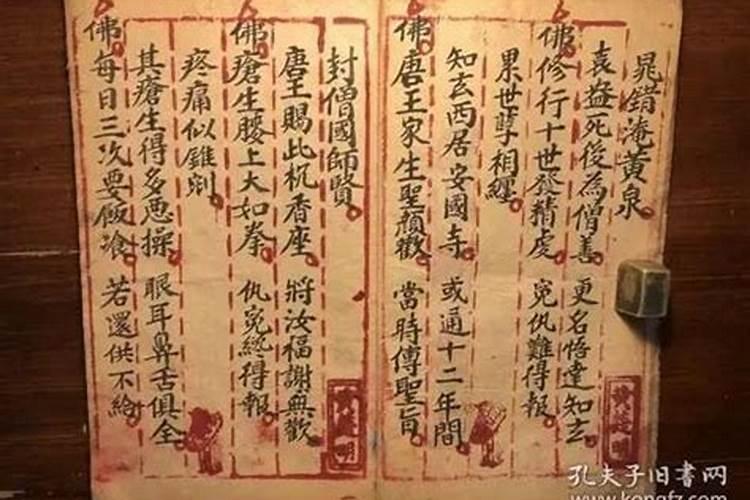 晁錯淹黃泉
袁益死後為僧善 更名悟達知玄
佛修行十世發精虔 寃仇難得報
累世孽相纏
知玄西居安國寺 或通十二年間
佛唐王家生聖顏歡 當時傳聖旨
封僧國師賢
唐王賜此杌香座 將汝福謝無歡
佛瘡生腰上大如拳 仇寃終得報
疼痛似錐剜
其瘡生得多惡操 眼耳鼻舌俱全
佛每日三次要飯飡 若還供不給
孔夫子旧书网